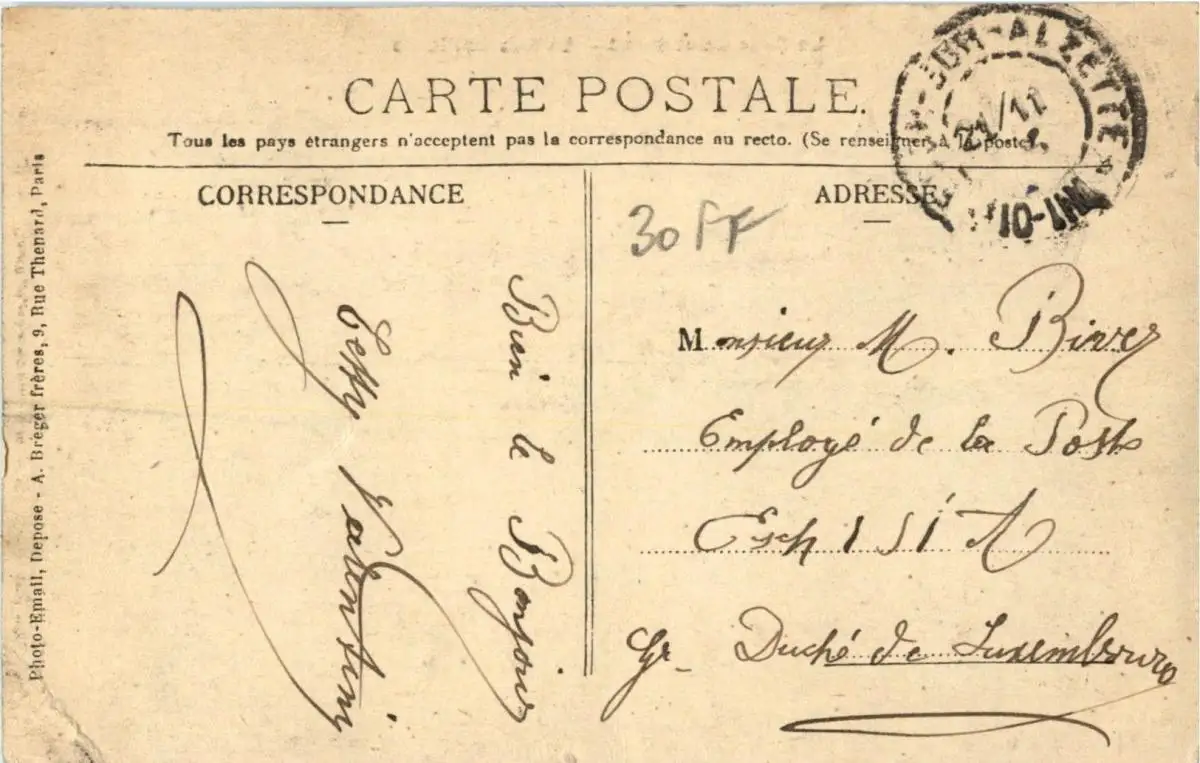 CARTE POSTALE.
Tous les pays étrangers n'acceptent pas la correspondance au recto. (Se renseigner à la poste).
CORRESPONDANCE
ADRESSE
Photo-Email, Depose - A. Breger frères, 9, Rue Thenard, Paris
30 FF
Bien le Bonjour
Monsieur M. Biver
Employé de la Poste
Esch s/A
Gr. Duché de Luxembourg
-SUR-ALZETTE *
21/11
10-11